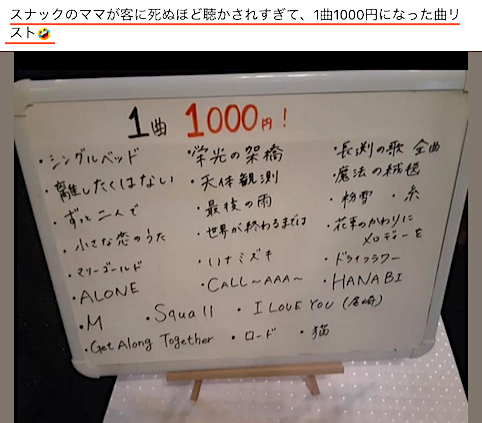 スナックのママが客に死ぬほど聴かされすぎて、1曲1000円になった曲リ
スト🤣
1曲 1000円!
・シングルベッド ・栄光の架橋 ・長渕の歌 全曲
・離したくはない ・天体観測 ・魔法の絨毯
・ずっと二人で ・最後の雨 ・粉雪 ・糸
・小さな恋のうた ・世界が終わるまでは ・花束のかわりに
メロディーを
・マリーゴールド ・ハナミズキ ・ドライフラワー
・ALONE ・CALL~AAA~ ・HANABI
・M ・Squall ・I LOVE YOU (尾崎)
・Get Along Together ・ロード ・猫